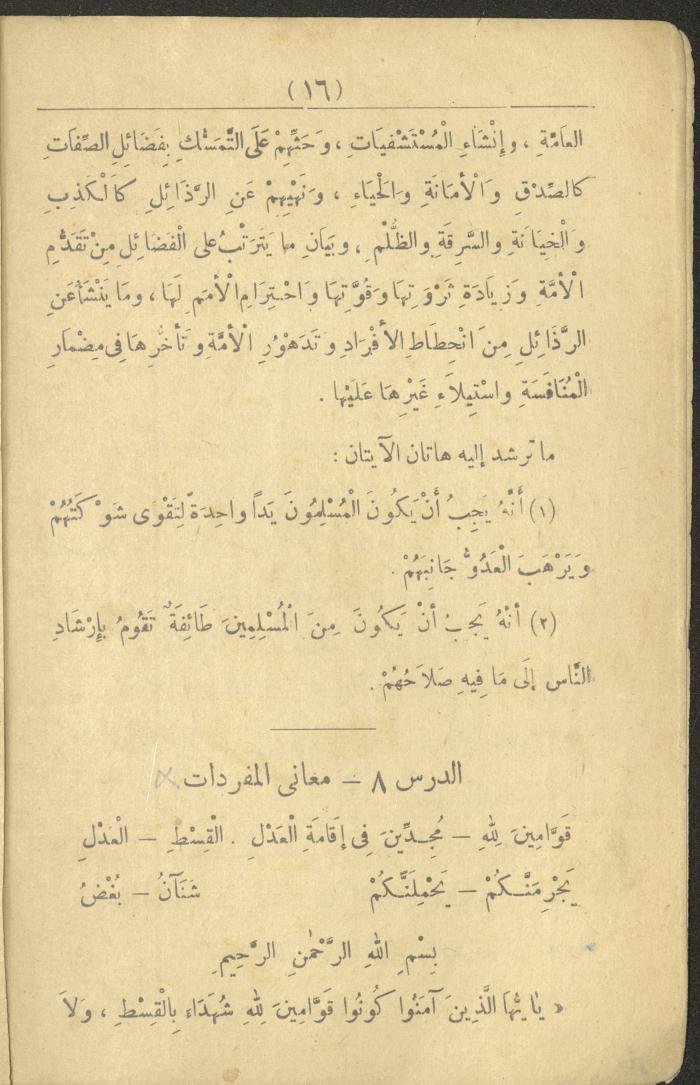 (١٦)
العَامَّةِ ، وإِنْشَاءِ الْمُسْتَشْفِيَاتِ ، وَحَثِّهِمْ عَلَى التَّمَسُّكِ بِفَضَائِلِ الصِّفَاتِ
كالصِّدْقِ وَالْأَمَانَةِ وَالْحَيَاءِ ، وَنَهْيِهِمْ عَنِ الرَّذَائِلِ كَالْكَذِبِ
وَالْخِيَانَةِ والسَّرِقَةِ والظُّلْمِ ، وبَيَانِ ما يَتَرَتَّبُ على الْفَضَائِلِ مِنْ تَقَدُّمِ
الْأُمَّةِ وَزِيَادَةِ ثَرْوَتِهَا وَقُوَّتِهَا وَاحْتِرَامِ الْأُمَمِ لَهَا ، وَمَا يَنْشَأُ عَنِ
الرَّذَائِلِ مِنَ انْحِطَاطِ الأَفْرَادِ وتَدَهْوُرِ الْأُمَّةِ وتَأَخُّرِهَا فى مِضْمَارِ
الْمُنَافَسَةِ واسْتِيلَاءِ غَيْرِهَا عَلَيْهَا .
ما ترشد إليه هاتان الآيتان :
(١) أَنَّهُ يَجِبُ أَنْ يَكُونَ الْمُسْلِمُونَ يَداً واحِدَةً لِتَقْوَى شَوْكَتُهُمْ
وَيَرْهَبَ الْعَدُوُّ جَانِبَهُمْ .
(٢) أَنَّهُ يَجِبُ أَنْ يَكُونَ مِنَ الْمُسْلِمِينَ طَائِفَةٌ تَقُومُ بِإِرْشَادِ
النَّاسِ إِلَى مَا فِيهِ صَلَاحُهُمْ .
الدرس ٨ — معانى المفردات
قَوَّامِينَ لِلهِ — مُجِدِّينَ فِى إِقَامَةِ الْعَدْلِ . الْقِسْطِ — الْعَدْلِ
يَجْرِمَنَّكُمْ — يَحْمِلَنَّكُمْ شَنَآنُ — بُغْضُ
بِسْمِ اللهِ الرَّحْمٰنِ الرَّحِيمِ
« يٰأَيُّهَا الَّذِينَ آمَنُوا كُونُوا قَوَّامِينَ لِلهِ شُهَدَاءَ بِالْقِسْطِ ، وَلَا